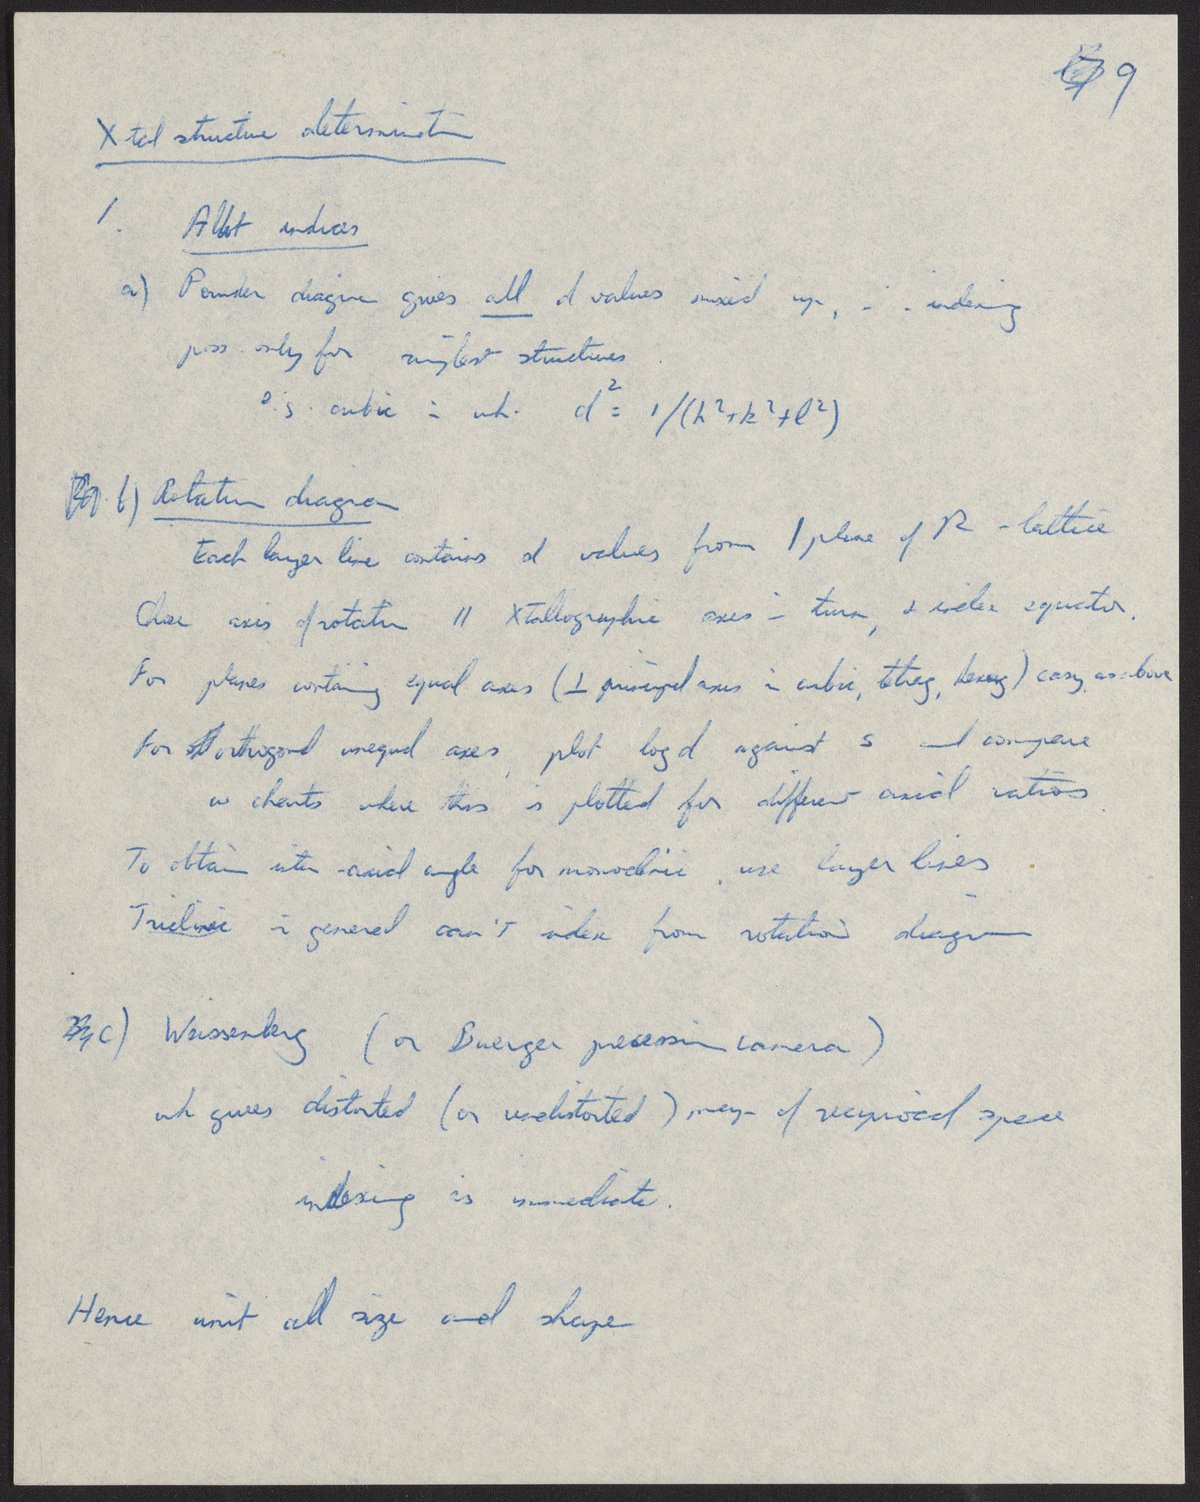 9
Xtal structure determination
1. Allot indices
a) Powder diagram gives all d values mixed up, ∴ indexing
poss. only for simplest structures.
e.g. cubic in wh. d² = 1/(h²+k²+l²)
b) Rotation diagram
Each layer line contains d values from 1 plane of R-lattice
Chose axis of rotation || Xtallographic axes in turn, & index equator.
For planes containing equal axes (⊥ principal axes in cubic, tetrag, hexag) easy, as above
For orthogonal unequal axes, plot log d against s and compare
w charts where this is plotted for different axial ratios.
To obtain inter-axial angle for monoclinic, use layer lines
Triclinic in general can't index from rotation diagram
c) Weissenberg (or Buerger precession camera)
wh gives distorted (or undistorted) map of reciprocal space
indexing is immediate.
Hence unit cell size and shape